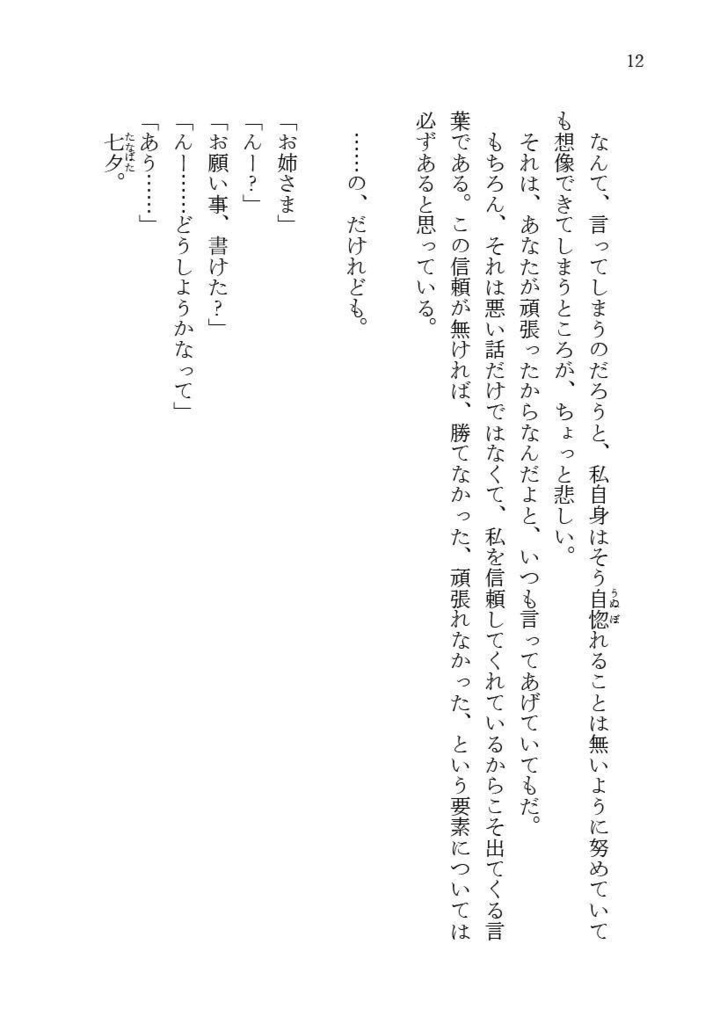 12
なんて、言ってしまうのだろうと、私自身はそう自惚れることは無いように努めていて
も想像できてしまうところが、ちょっと悲しい。
それは、あなたが頑張ったからなんだよと、いつも言ってあげていてもだ。
もちろん、それは悪い話だけではなくて、私を信頼してくれているからこそ出てくる言
葉である。この信頼が無ければ、勝てなかった、頑張れなかった、という要素については
必ずあると思っている。
……の、だけれども。
「お姉さま」
「んー?」
「お願い事、書けた?」
「んー……どうしようかなって」
「あう……」
七夕。
うぬぼ
たなばた